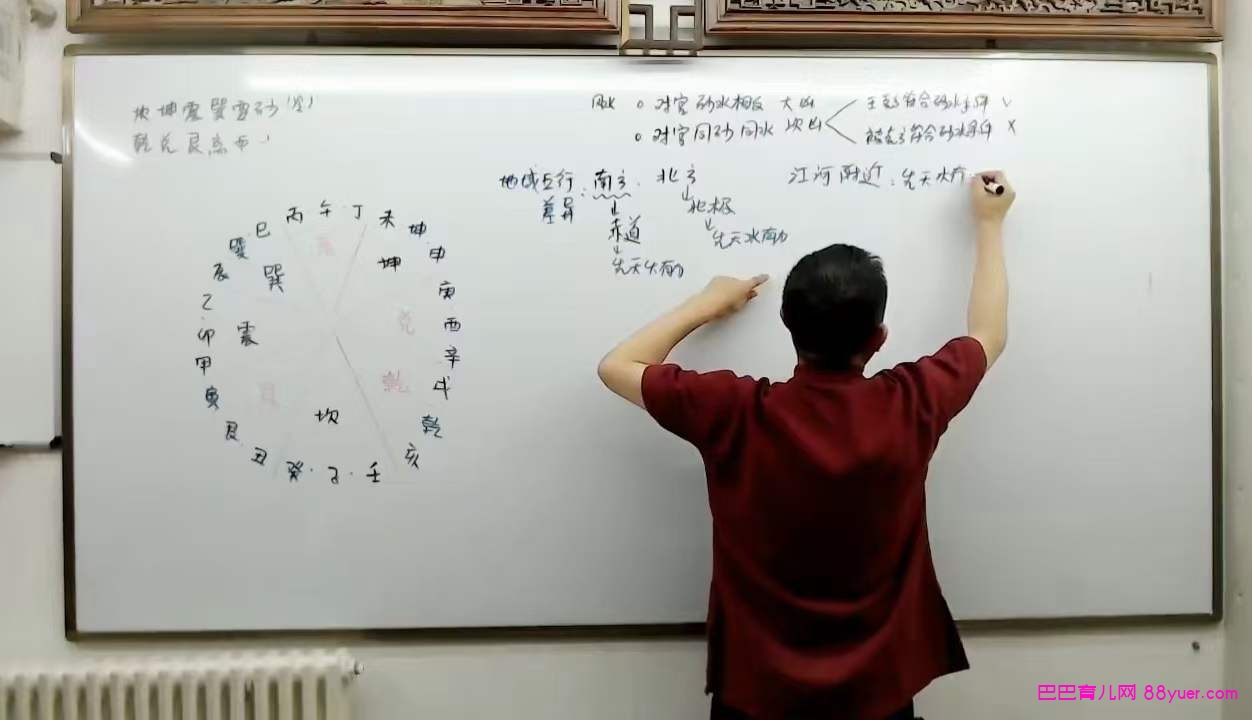 坎坤震巽需砂
乾兑艮
风水 o 对宫砂水相反 大凶 主 符合砂水条件 √
o 对宫同砂同水 次凶 符合砂水条件 X
地域五行差异: 南方. 北方
↓ ↓
赤道 北极
↓ ↓
先天火有力 先天水有力
江河附近: 先天水有
巳 丙 午 丁 未 坤 申 庚 酉 辛 戌 乾 亥 壬 · 子 · 癸 丑 艮 寅 甲 卯 乙 辰 巽
巽 离 坤
震 兑
艮 坎 乾
巴巴育儿网 88yuer.com